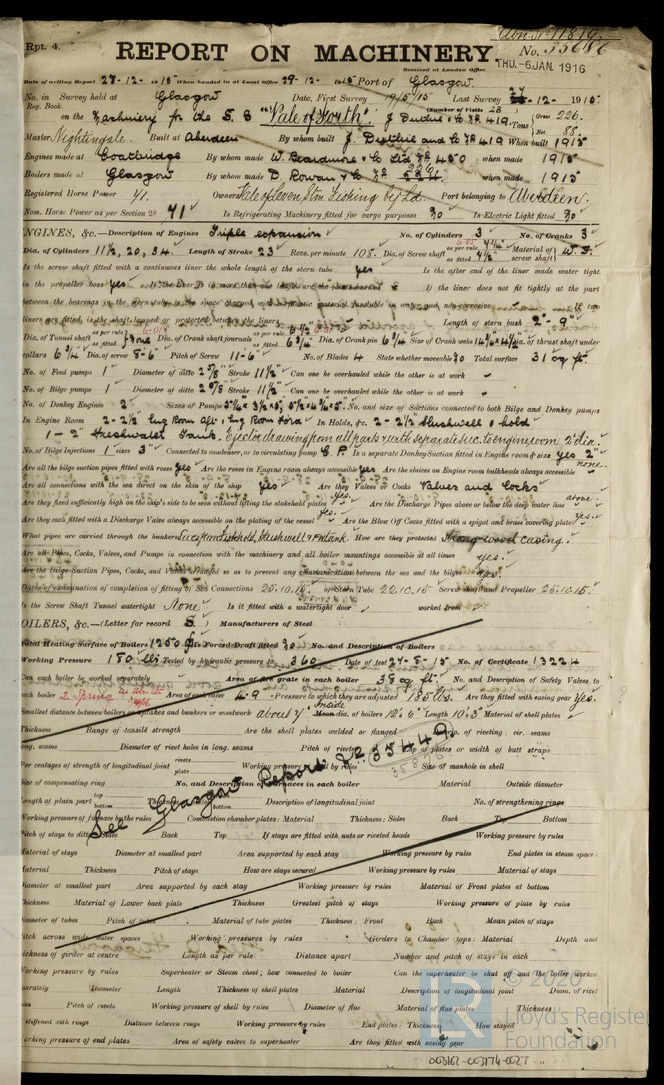 Abn. No. 11819.
Rpt. 4.
REPORT ON MACHINERY
No. 35686
Received at London Office THU.-6 JAN. 1916
Date of writing Report 27-12- 1915 When handed in at Local Office 29-12- 1915 Port of Glasgow.
No. in Survey held at Glasgow Date, First Survey 19/5/15 Last Survey -12- 1915
Reg. Book. (Number of Visits 28)
on the Machinery for the S.S "Vale of Fouth". J. Duthie & Co No 419. Tons Gross 226. Net 88.
Master Nightingale. Built at Aberdeen By whom built J. Duthie and Co No 419 When built 1915
Engines made at Coatbridge By whom made W. Beardmore & Co Ltd No 450 when made 1915
Boilers made at Glasgow By whom made D. Rowan & Co No when made 1915
Registered Horse Power 41. Owners Vale of Leven Stm Fishing Coy Ld. Port belonging to Aberdeen.
Nom. Horse Power as per Section 28 41 Is Refrigerating Machinery fitted for cargo purposes No Is Electric Light fitted No
ENGINES, &c.—Description of Engines Triple expansion No. of Cylinders 3 No. of Cranks 3
Dia. of Cylinders 11½, 20, 34. Length of Stroke 23 Revs. per minute 108. Dia. of Screw shaft as per rule as fitted Material of screw shaft
Is the screw shaft fitted with a continuous liner the whole length of the stern tube yes Is the after end of the liner made water tight
in the propeller boss yes If the liner is in more than one length are the joints burned If the liner does not fit tightly at the part
between the bearings in the stern tube, is the space charged with a plastic material insoluble in water and non-corrosive If two
liners are fitted, is the shaft lapped or protected between the liners Length of stern bush 2'-9"
Dia. of Tunnel shaft as per rule as fitted None Dia. of Crank shaft journals as per rule as fitted 6¾ Dia. of Crank pin 6¾ Size of Crank webs Dia. of thrust shaft under
collars 6¾ Dia. of screw 8-6 Pitch of Screw 11-6" No. of Blades 4 State whether moveable No Total surface 31 sq ft.
No. of Feed pumps 1 Diameter of ditto 2⅝ Stroke 11½" Can one be overhauled while the other is at work
No. of Bilge pumps 1 Diameter of ditto 2⅝ Stroke 11½" Can one be overhauled while the other is at work
No. of Donkey Engines 2 Sizes of Pumps No. and size of Suctions connected to both Bilge and Donkey pumps
In Engine Room 2-2½" Eng Room Aft, Eng Room Ford In Holds, &c. 2-2½ Slushwell & hold
1-2" Freshwater Tank. Ejector drawing from all parts with separate suc. to engine room 2" dia.
No. of Bilge Injections 1 sizes 3" Connected to condenser, or to circulating pump C.P. Is a separate Donkey Suction fitted in Engine room & size yes 2"
Are all the bilge suction pipes fitted with roses yes Are the roses in Engine room always accessible yes Are the sluices on Engine room bulkheads always accessible none.
Are all connections with the sea direct on the skin of the ship yes Are they Valves or Cocks Valves and Cocks
Are they fixed sufficiently high on the ship's side to be seen without lifting the stokehold plates yes. Are the Discharge Pipes above or below the deep water line above.
Are they each fitted with a Discharge Valve always accessible on the plating of the vessel yes. Are the Blow Off Cocks fitted with a spigot and brass covering plate yes.
What pipes are carried through the bunkers Suces from Fishhold, Slushwell & FW tank. How are they protected Strong wood casing.
Are all Pipes, Cocks, Valves, and Pumps in connection with the machinery and all boiler mountings accessible at all times yes.
Are the Bilge Suction Pipes, Cocks, and Valves arranged so as to prevent any communication between the sea and the bilges yes.
Dates of examination of completion of fitting of Sea Connections 25.10.15 of Stern Tube 22.10.15 Screw shaft and Propeller 25.10.15.
Is the Screw Shaft Tunnel watertight None Is it fitted with a watertight door worked from
BOILERS, &c.—(Letter for record S) Manufacturers of Steel
Total Heating Surface of Boilers 1250 Is Forced Draft fitted No No. and Description of Boilers
Working Pressure 180 lbs Tested by hydraulic pressure to 360 Date of test 27-8-15 No. of Certificate 13224
Can each boiler be worked separately Area of fire grate in each boiler 38 sq ft. No. and Description of Safety Valves to
each boiler 2 Spring Area of each valve 4.9 Pressure to which they are adjusted 185 lbs. Are they fitted with easing gear Yes.
Smallest distance between boilers or uptakes and bunkers or woodwork about 7" Inside Mean dia. of boilers 12'6" Length 10'3" Material of shell plates
Thickness Range of tensile strength Are the shell plates welded or flanged Descrip. of riveting: cir. seams
long. seams Diameter of rivet holes in long. seams Pitch of rivets Lap of plates or width of butt straps
Per centages of strength of longitudinal joint rivets plate Working pressure of shell by rules Size of manhole in shell
Size of compensating ring No. and Description of Furnaces in each boiler Material Outside diameter
See Glasgow Report No 35449.
35876
Length of plain part top bottom Thickness of plates bottom Description of longitudinal joint No. of strengthening rings
Working pressure of furnace by the rules Combustion chamber plates: Material Thickness: Sides Back Top Bottom
Pitch of stays to ditto: Sides Back Top If stays are fitted with nuts or riveted heads Working pressure by rules
Material of stays Diameter at smallest part Area supported by each stay Working pressure by rules End plates in steam space:
Material Thickness Pitch of stays How are stays secured Working pressure by rules Material of stays
Diameter at smallest part Area supported by each stay Working pressure by rules Material of Front plates at bottom
Thickness Material of Lower back plate Thickness Greatest pitch of stays Working pressure of plate by rules
Diameter of tubes Pitch of tubes Material of tube plates Thickness: Front Back Mean pitch of stays
Pitch across wide water spaces Working pressures by rules Girders to Chamber tops: Material Depth and
thickness of girder at centre Length as per rule Distance apart Number and pitch of stays in each
Working pressure by rules Superheater or Steam chest; how connected to boiler Can the superheater be shut off and the boiler worked
separately Diameter Length Thickness of shell plates Material Description of longitudinal joint Diam. of rivet
holes Pitch of rivets Working pressure of shell by rules Diameter of flue Material of flue plates Thickness
If stiffened with rings Distance between rings Working pressure by rules End plates: Thickness How stayed
Working pressure of end plates Area of safety valves to superheater Are they fitted with easing gear
© 2020
Lloyd's Register
Foundation
003162-003174-0027